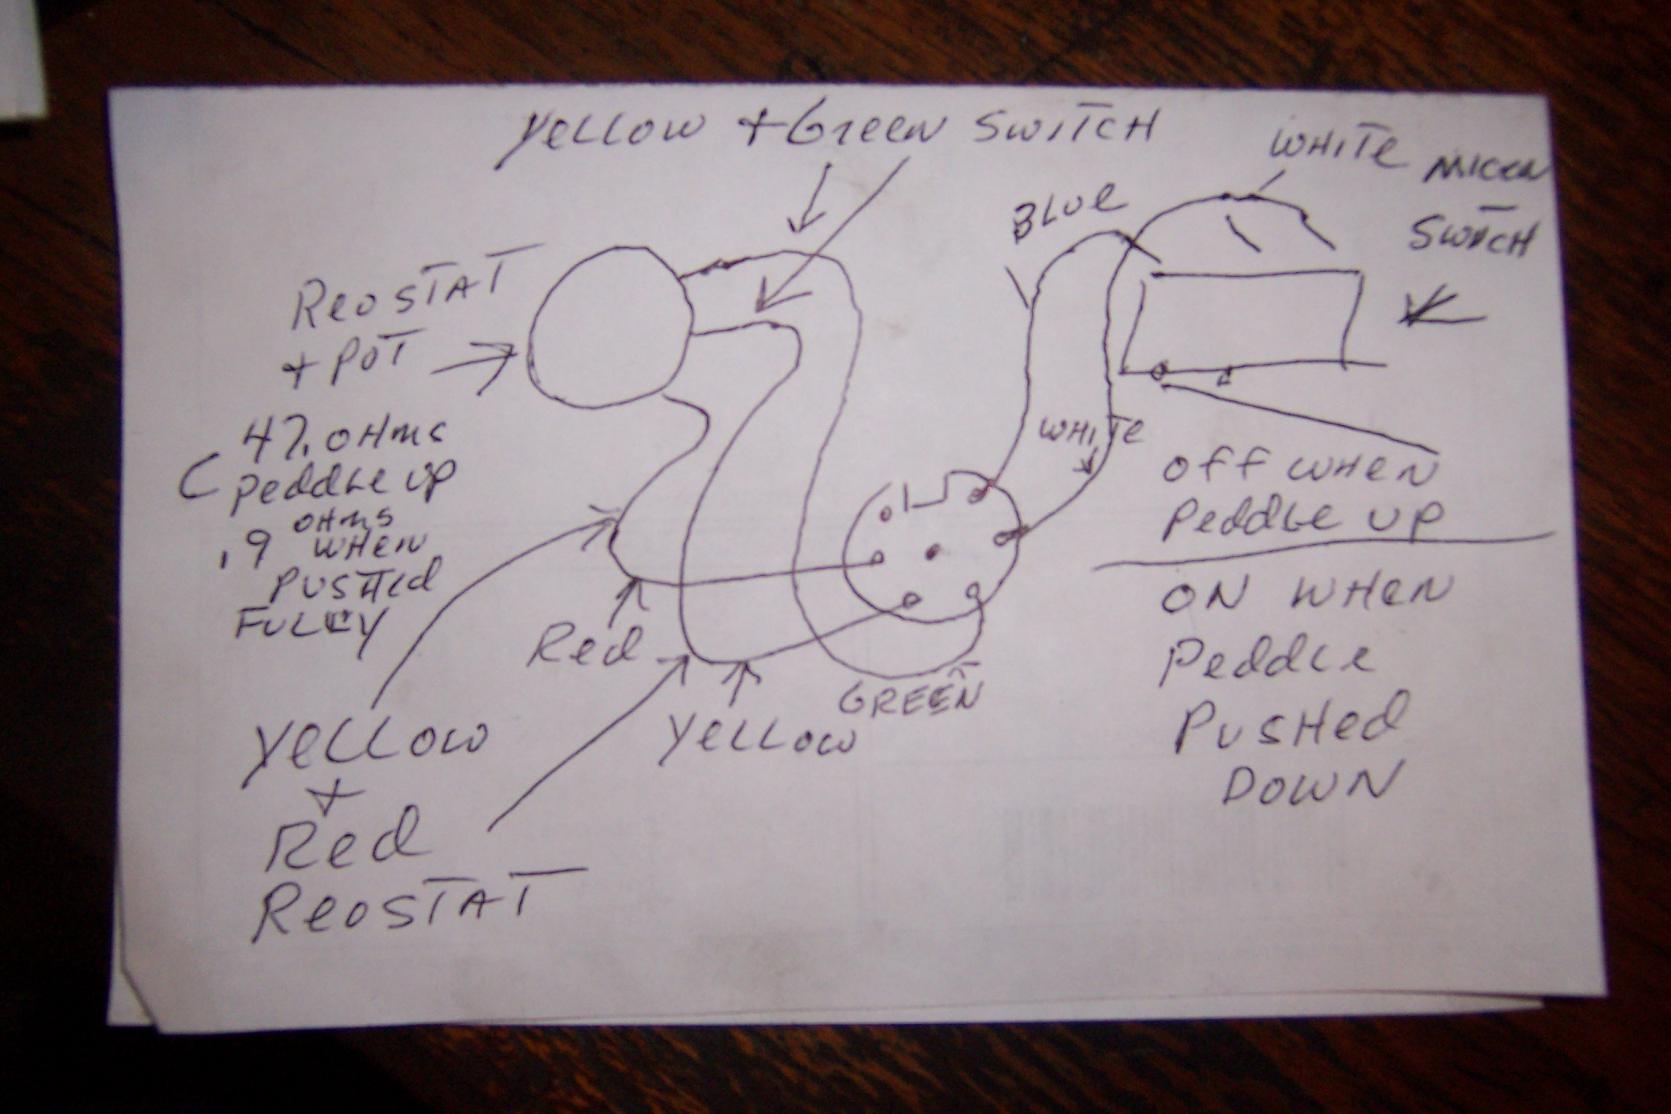 Yellow + Green Switch
White Micro
Switch
Blue
Reostat
+ Pot
47. Ohms
Peddle up
Ohms
.9 When
Pushed
Fulley
White
Off When
Peddle up
On When
Peddle
Pushed
Down
Red
Yellow
Green
Yellow
+
Red
Reostat